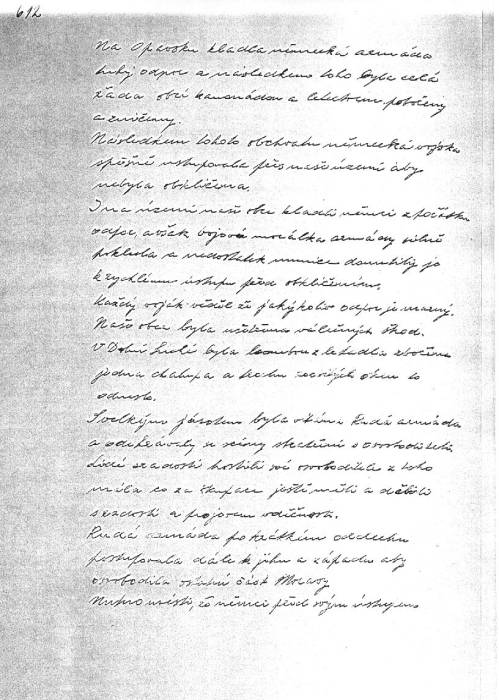 612
Na Opavsku kladla německá armáda
tuhý odpor a následkem toho byla celá
řada obcí kanonádou a letectvem pobořeny
a zničeny.
Následkem tohoto obchvatu německá vojska
spěšně ustupovala přes naše území aby
nebyla obklíčena.
I na území naší obce kladli němci z počátku
odpor, avšak bojová morálka armády silně
poklesla a nedostatek munice donutily je
k rychlému ústupu před obklíčením.
Každý voják věděl že jakýkoliv odpor je marný.
Naše obec byla ušetřena válečných škod.
V Dolní byla bombou z letadla zbořena
jedna chalupa a trochu oken to
odneslo.
S velkým jásotem byla vítána Rudá armáda
a odehrávaly se scény shledání s osvoboditeli.
Lidé s radostí hostili své osvoboditele z toho
mála co za okupace ještě měli a
s radostí a projevem vděčnosti.
Rudá armáda po krátkém oddechu
postupovala dále k jihu a západu aby
osvobodila ostatní část Moravy
Nutno uvésti, že němci před svým ústupem